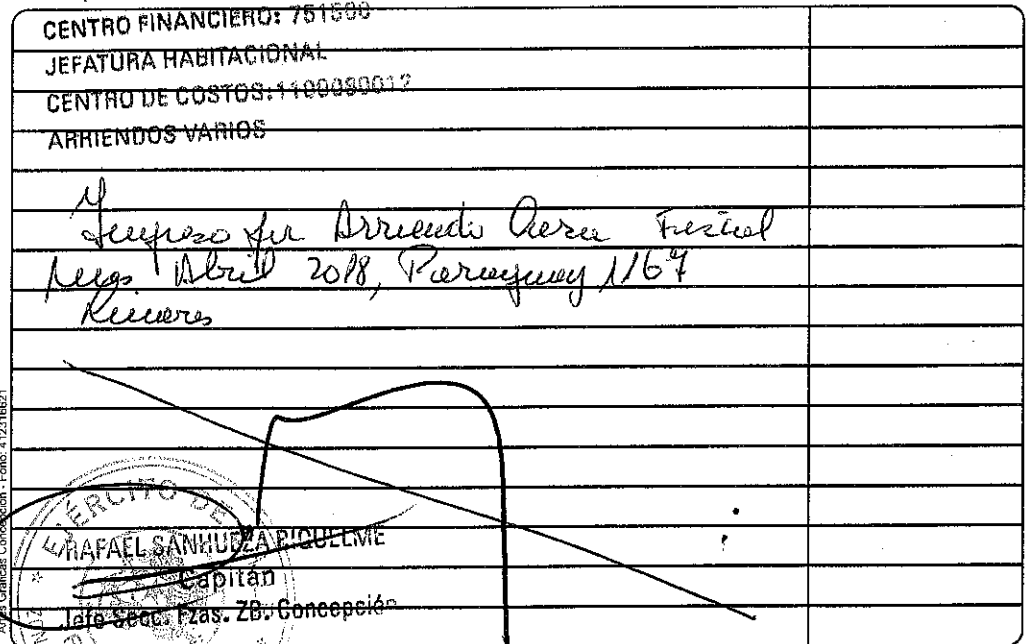 CENTRO FINANCIERO: 751500
JEFATURA HABITACIONAL
CENTRO DE COSTOS:1100080012
ARRIENDOS VARIOS
Ingreso por Arriendo Casa Fiscal
Mes Abril 2018, Paraguay 1167
Linares
EJÉRCITO DE
RAFAEL SANHUEZA RIQUELME
Capitán
Jefe Secc. Fzas. ZB. Concepción
Artes Gráficas Concepción - Fono: 412316621